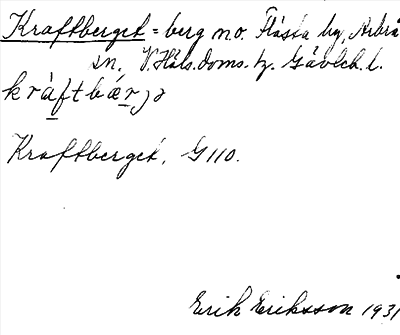 Kraftberget = berg n.o. Flästa by, Arbrå
sn. V. Häls. doms. tg. Gävleb. l.
kràftbǽrjə
Kraftberget, G 110.
Erik Eriksson 1931